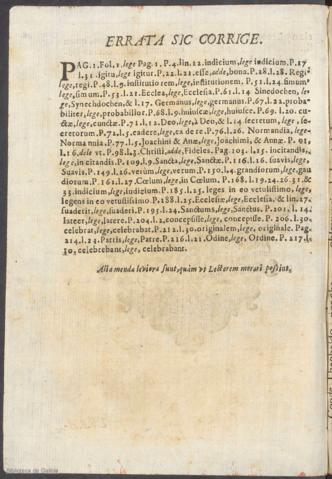 ERRATA SIC CORRIGE.
PAG. 1. Fol. 1, lege Pag. 1. P. 4. lin. 12. indicium, lege iudicium. P. 17
l. 31. igitu, lege igitur. P. 22. l. 21. esse, adde, bona. P. 28. l. 28. Regi,
lege, regi. P. 48. l. 9. institutio rem, lege, institutionem. P. 51. l. 24. simum
lege, sim um. P. 53. l. 21. Ecclea, lege, Ecclesia. P. 61. l. 14 Sinedochen, le-
ge, Synechdochen, & l. 17. Germanus, lege, germanus. P. 67. l. 22. proba-
biliter, lege, probabilior. P. 68. l. 9. huiuscæ, lege, huiusce. P. 69. l. 20. cu-
ctæ, lege, cunctæ. P. 71. l. 12. Deo, lege, à Deo, & l. 14 secretum, lege, se-
cretorum. P. 72. l. 5. eadere, lege, ea de re. P. 76. l. 26. Normandia, lege-
Norma nnia. P. 77. l. 5. Joachini & Annæ, lege, Joachimi, & Annæ. P. 91.
l. 16. dele vt. P. 98. l. 3. Christi, adde, Fideles. Pag. 103. l. 15. incitandis,
lege, in citandis. P. 109. l. 9. Sancta, lege, Sanctæ. P. 116. l. 16. suavis, lege,
Suavis. P. 149. l. 26. verùm, lege, verum. P. 150. l. 4. grandiorum, lege, gau
diorum. P. 161. l. 27. Cœlum, lege, in Cœlum. P. 168. l. 19. 24. 26. 31. &
33. indicium, lege, iudigium. P. 185. l. 25. leges in eo vetustissimo, lege,
legens in eo vetustissimo. P. 188. l. 25. Ecclesiæ, lege, Ecclesia, & lin. 27.
suaderit, lege, suaderi. P. 195. l. 24. Sanctums, lege, Sanctus. P. 201. l. 14
lateer, lege, latere. P. 204. l. 2. conceptisse, lege, concepisse. P. 206. l. 30,
celebrat, lege, celebrabat. P. 212. l. 30. originalem, lege, originale. Pag.
214. l. 23. Patris, lege, Patre. P. 216. l. 21. Odine, lege, Ordine. P. 217. l.
30. celebrebant, lege, celebrabant.
Alia menda leviora sunt, quàm vt Lectorem morari possint.
Biblioteca de Galicia